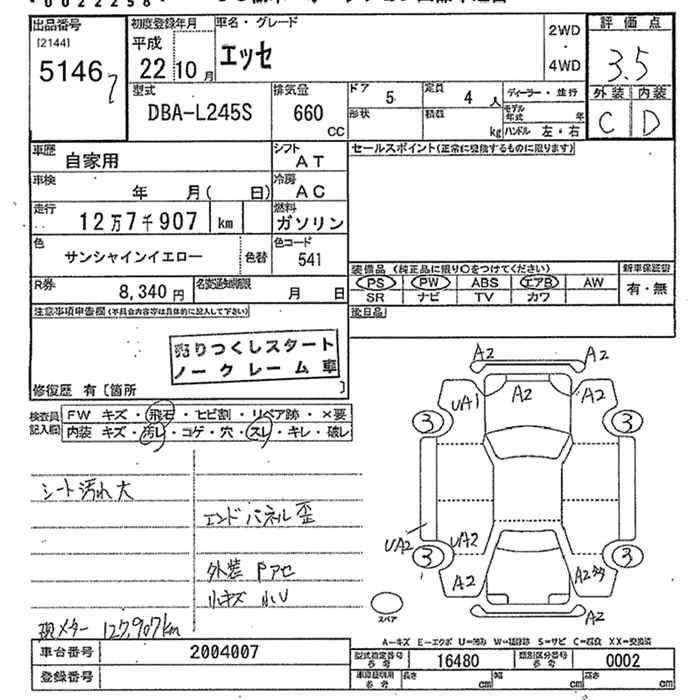 0022258
出品番号
[2144]
51467
初度登録年月
平成
22 10 月
車名・グレード
エッセ
2WD
・
4WD
評価点
3.5
外装 内装
C D
型式
DBA-L245S
排気量
660
CC
ドア
5
定員
4 人
形状
積載
kg
ディーラー・並行
モデル年式 年
ハンドル 左・右
車歴
自家用
シフト
AT
車検
年 月( 日)
冷房
AC
走行
12万7千907 km
燃料
ガソリン
色
サンシャインイエロー
色替
色コード
541
R券
8,340 円
名変通知期限
月 日
セールスポイント(正常に機能するものに限ります)
装備品 (純正品に限り○をつけてください)
PS PW ABS エアB AW
SR ナビ TV カワ
新車保証書
有・無
後日品
注意事項申告欄(不具合内容等は具体的に記入して下さい)
売りつくしスタート
ノークレーム車
修復歴 有 [箇所 ]
検査員記入欄
FW キズ・飛石・ヒビ割・リペア跡・×要
内装 キズ・汚レ・コゲ・穴・スレ・キレ・破レ
シート汚れ大
エンドパネル歪
外装 Pアセ
小キズ 小U
現メーター 127,907km
A2 A2
UA1 A2 A2
3 3
UA2 UA2
3 3
A2
A2
スペア
A-キズ E-エクボ U=凹み W=補修跡 S=サビ C=腐食 XX=交換済
車台番号 2004007
登録番号
型式指定番号 参考 16480
類別区分番号 参考 0002
車庫証明用 参考 長さ cm 幅 cm 高さ cm